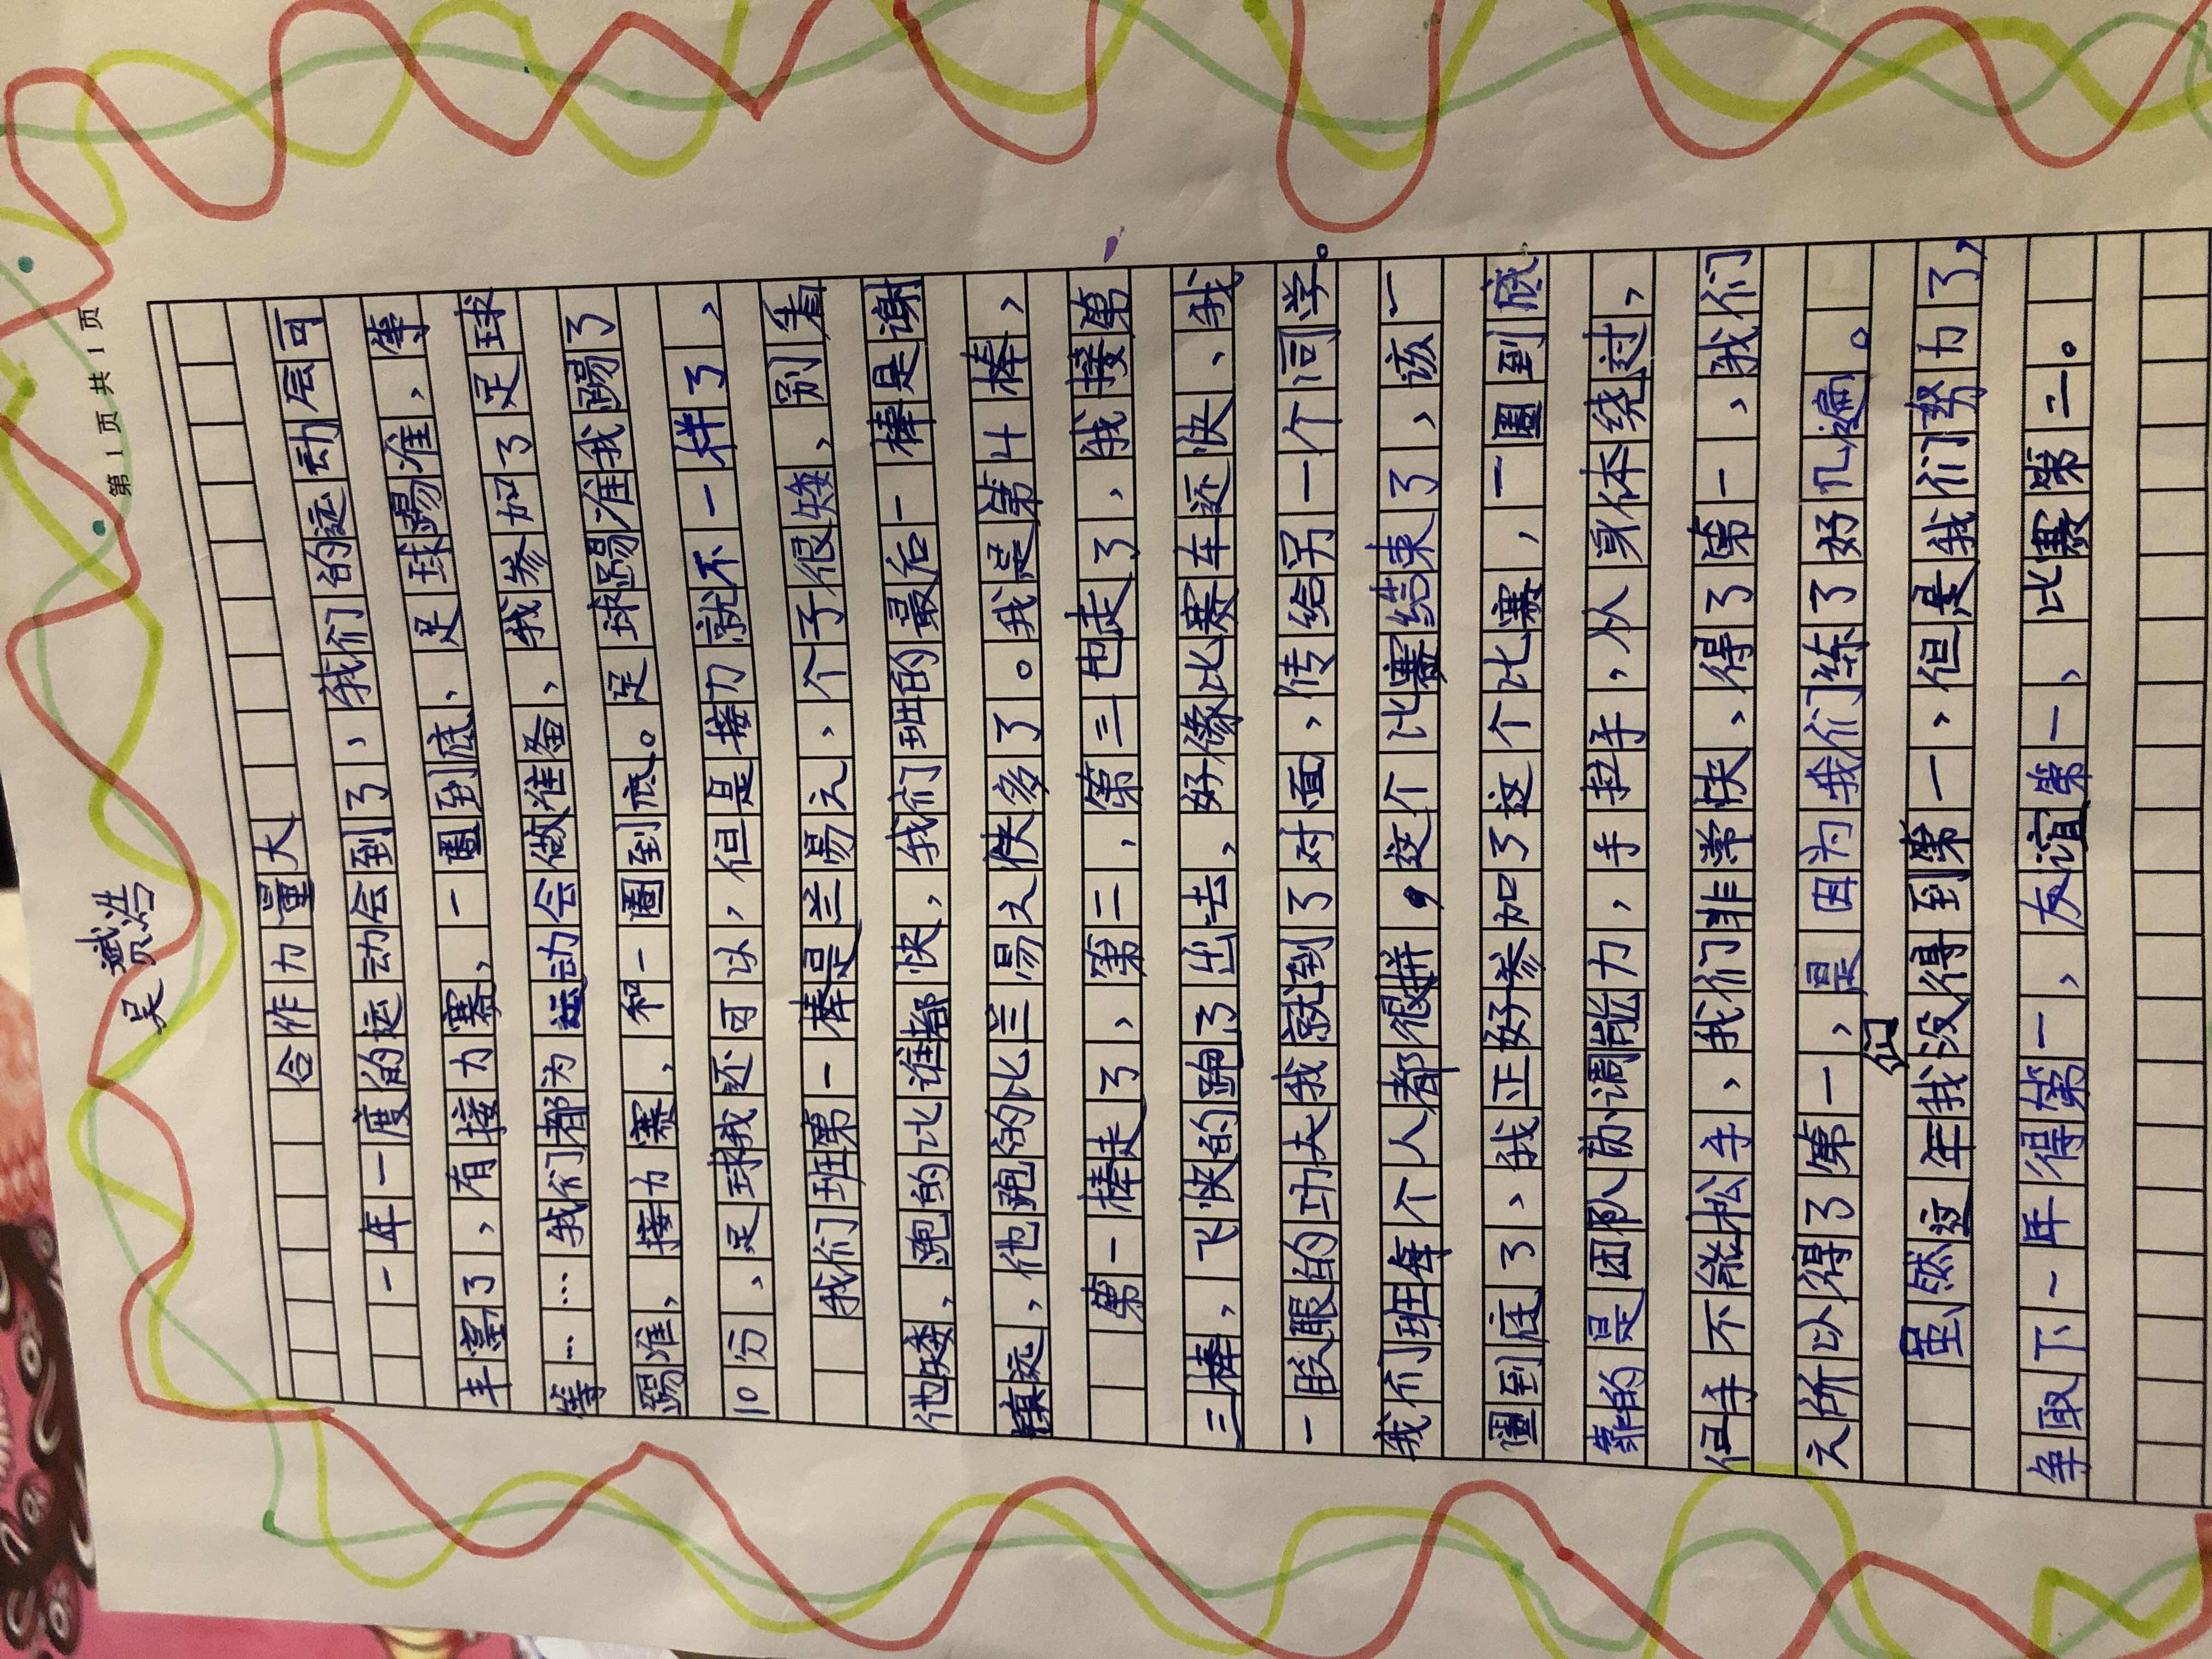 第 1 页 共 1 页
吴赟浩
合作力量大
一年一度的运动会到了，我们的运动会可
丰富了，有接力赛，一圈到底，足球踢准，等
等……我们都为运动会做准备，我参加了足球
踢准，接力赛，和一圈到底。足球踢准我踢了
10分，足球我还可以，但是接力就不一样了，
我们班第一棒是兰易元，个子很矮，别看
他矮，跑的比谁都快，我们班的最后一棒是谢
镇远，他跑的比兰易元快多了。我是第4棒，
第一棒走了，第二，第三也走了，我接第
三棒，飞快的跑了出去，好像比赛车还快，我
一眨眼的功夫我就到了对面，传给另一个同学。
我们班每个人都很拼，这个比赛结束了，该一
圈到底了，我正好参加了这个比赛，一圈到底
靠的是团队协调能力，手拉手，从身体绕过，
但手不能松手，我们非常快，得了第一，我们
元所以得了第一，是因为我们练了好几遍。
虽然这年我们没得到第一，但是我们努力了，
争取下一年得第一，友谊第一，比赛第二。